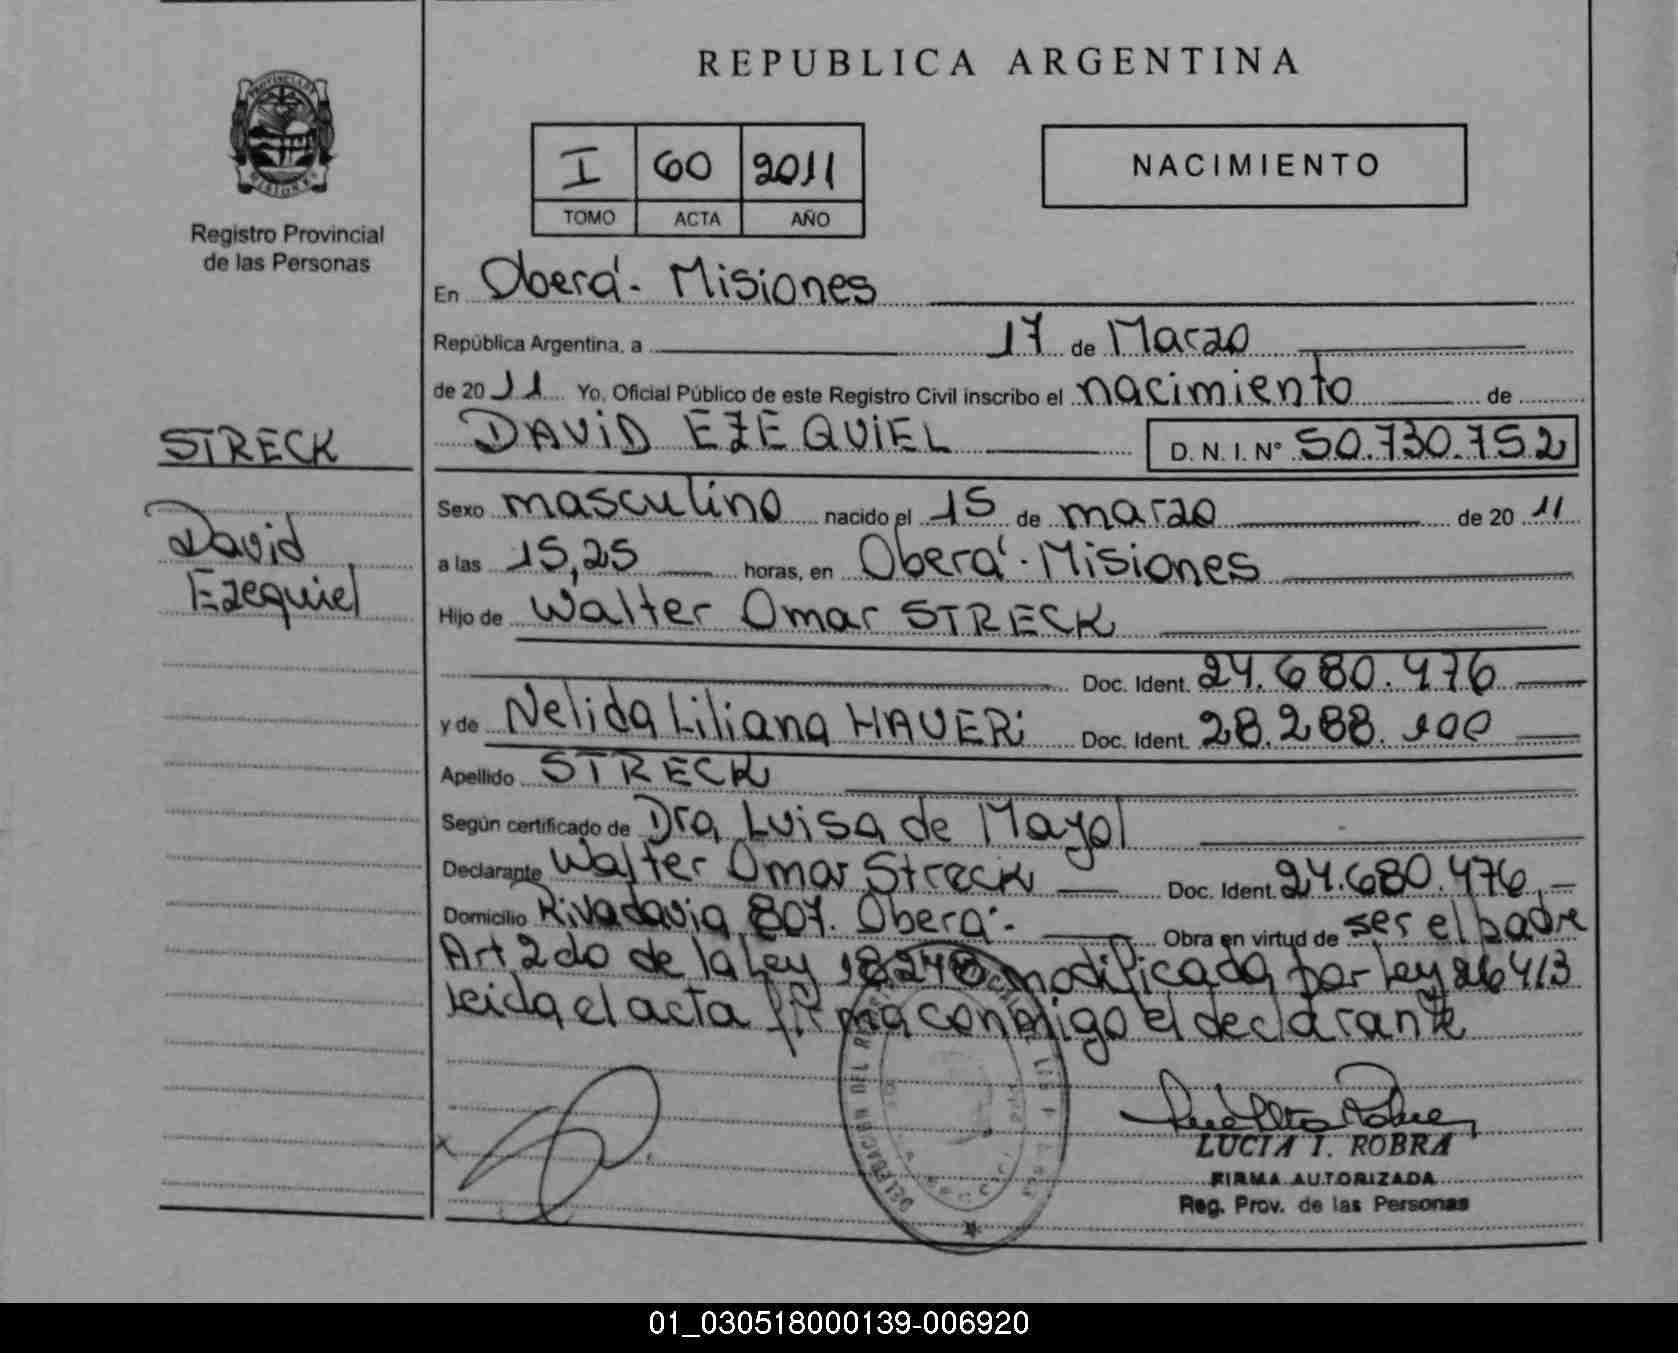 REPUBLICA ARGENTINA
I 60 2011
TOMO ACTA AÑO
NACIMIENTO
Registro Provincial
de las Personas
En Oberá - Misiones
República Argentina, a 17 de Marzo
de 2011 Yo, Oficial Público de este Registro Civil inscribo el nacimiento de
DAVID EZEQUIEL D. N. I. N° 50.730.752
STRECK
David
Ezequiel
Sexo masculino nacido el 15 de marzo de 2011
a las 15,25 horas, en Oberá - Misiones
Hijo de Walter Omar STRECK
Doc. Ident. 24.680.476
y de Nelida Liliana HAUERi Doc. Ident. 28.288.100
Apellido STRECK
Según certificado de Dra. Luisa de Mayol
Declarante Walter Omar Streck Doc. Ident. 24.680.476.
Domicilio Rivadavia 807. Oberá - Obra en virtud de ser el padre
Art 2do de la Ley 18248 modificada por Ley 26413
leida el acta firma conmigo el declarante
DELEGACIÓN DEL
LUCIA I. ROBRA
FIRMA AUTORIZADA
Reg. Prov. de las Personas
01_030518000139-006920